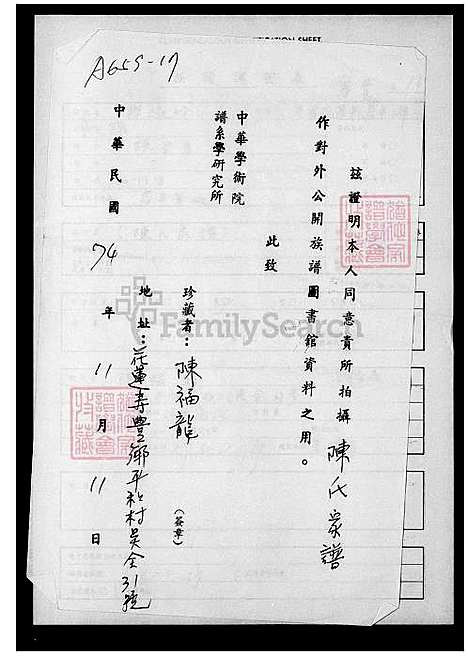 A659-17
茲證明本人同意貴所拍攝陳氏家譜
作對外公開族譜圖書館資料之用。
此致
中華學術院
譜系學研究所
珍藏者：陳福龍（簽章）
地址：花蓮壽豐鄉平和村吳全31號
中華民國74年11月11日
FamilySearch